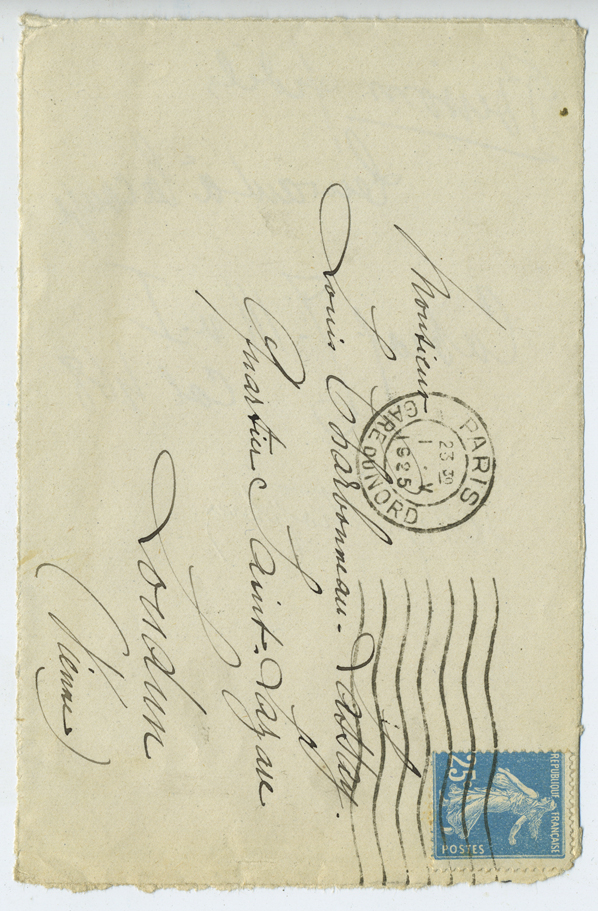 Monsieur
Louis Charbonneau-Lassay.
Quartier Saint-Lazare
Loudun
(Vienne)
PARIS
GARE DU NORD
23 30
1 V
1925
REPUBLIQUE FRANÇAISE
25
POSTES